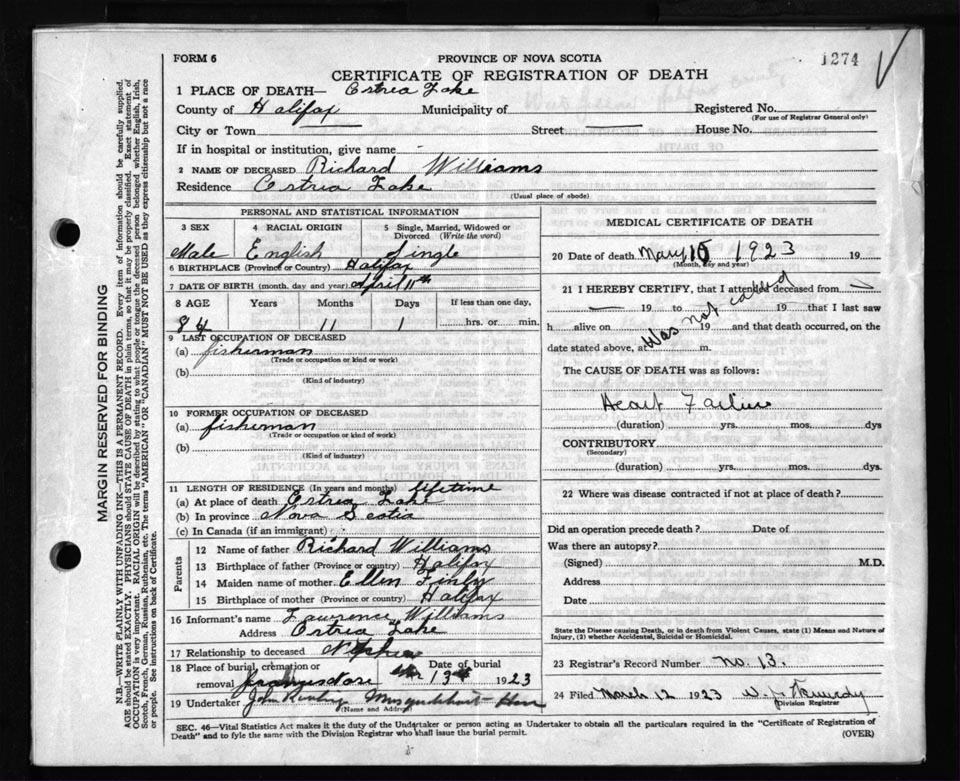 FORM 6
PROVINCE OF NOVA SCOTIA
1274
CERTIFICATE OF REGISTRATION OF DEATH
1 PLACE OF DEATH— Ostrea Lake
County of Halifax Municipality of Registered No.
(For use of Registrar General only)
City or Town Street House No.
If in hospital or institution, give name
2 NAME OF DECEASED Richard Williams
Residence Ostrea Lake
(Usual place of abode)
MARGIN RESERVED FOR BINDING
N.B.—WRITE PLAINLY WITH UNFADING INK—THIS IS A PERMANENT RECORD. Every item of information should be carefully supplied.
AGE should be stated EXACTLY. PHYSICIANS should STATE CAUSE OF DEATH in plain terms, so that it may be properly classified. Exact statement of
OCCUPATION is very important. RACIAL ORIGIN will be described by stating to what people or tongue the deceased person belonged whether English, Irish,
Scotch, French, German, Russian, Ruthenian, etc. The terms "AMERICAN" OR "CANADIAN" MUST NOT BE USED as they express citizenship but not a race
or people. See instructions on back of Certificate.
PERSONAL AND STATISTICAL INFORMATION
3 SEX 4 RACIAL ORIGIN 5 Single, Married, Widowed or
Divorced (Write the word)
Male English Single
6 BIRTHPLACE (Province or Country) Halifax
7 DATE OF BIRTH (month, day, and year) April 11th
8 AGE Years Months Days If less than one day,
84 11 1 hrs. or min.
9 LAST OCCUPATION OF DECEASED
(a) fisherman
(Trade or occupation or kind or work)
(b)
(Kind of industry)
10 FORMER OCCUPATION OF DECEASED
(a) fisherman
(Trade or occupation or kind of work)
(b)
(Kind of industry)
11 LENGTH OF RESIDENCE (In years and months) lifetime
(a) At place of death Ostrea Lake
(b) In province Nova Scotia
(c) In Canada (if an immigrant)
Parents
12 Name of father Richard Williams
13 Birthplace of father (Province or country) Halifax
14 Maiden name of mother Ellen
15 Birthplace of mother (Province or country) Halifax
16 Informant's name Lawrence Williams
Address Ostrea Lake
17 Relationship to deceased Nephew
18 Place of burial, cremation or Date of burial
removal 13th 1923
19 Undertaker John
(Name and Address)
MEDICAL CERTIFICATE OF DEATH
20 Date of death 1923 19
(Month, day and year)
21 I HEREBY CERTIFY, that I attended deceased from
19 to 19 that I last saw
h alive on 19 and that death occurred, on the
date stated above, at m.
Was not called
The CAUSE OF DEATH was as follows:
Heart Failure
(duration) yrs. mos. dys
CONTRIBUTORY
(Secondary)
(duration) yrs. mos. dys.
22 Where was disease contracted if not at place of death?
Did an operation precede death? Date of
Was there an autopsy?
(Signed) M.D.
Address
Date
State the Disease causing Death, or in death from Violent Causes, state (1) Means and Nature of
Injury, (2) whether Accidental, Suicidal or Homicidal.
23 Registrar's Record Number No. 13.
24 Filed March 12 1923 W. J. Kennedy
Division Registrar
SEC. 46—Vital Statistics Act makes it the duty of the Undertaker or person acting as Undertaker to obtain all the particulars required in the "Certificate of Registration of
Death" and to fyle the same with the Division Registrar who shall issue the burial permit.
(OVER)